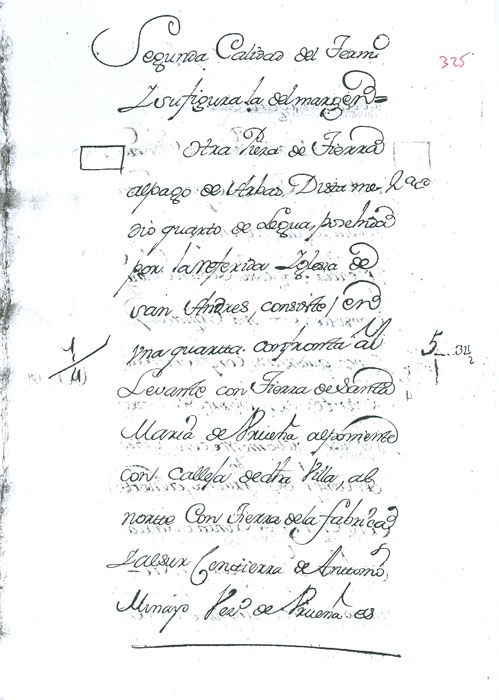 Segunda Calidad del Termi
325
Y su figura la del margen =
Otra Pieza de Tierra
al pago de Arbas Dista me
dio quarto de Legua, posehida
por la referida Iglesia de
san Andres, consiste en
vna quarta confronta al
1/4
5
Levante con Tierra de Santa
Maria de Prueña al poniente
con calleja de dha Villa, al
norte Con Tierra de la fabrica
Y al sur Con tierra de Antonio
Minayo Vez.º de Prueña es